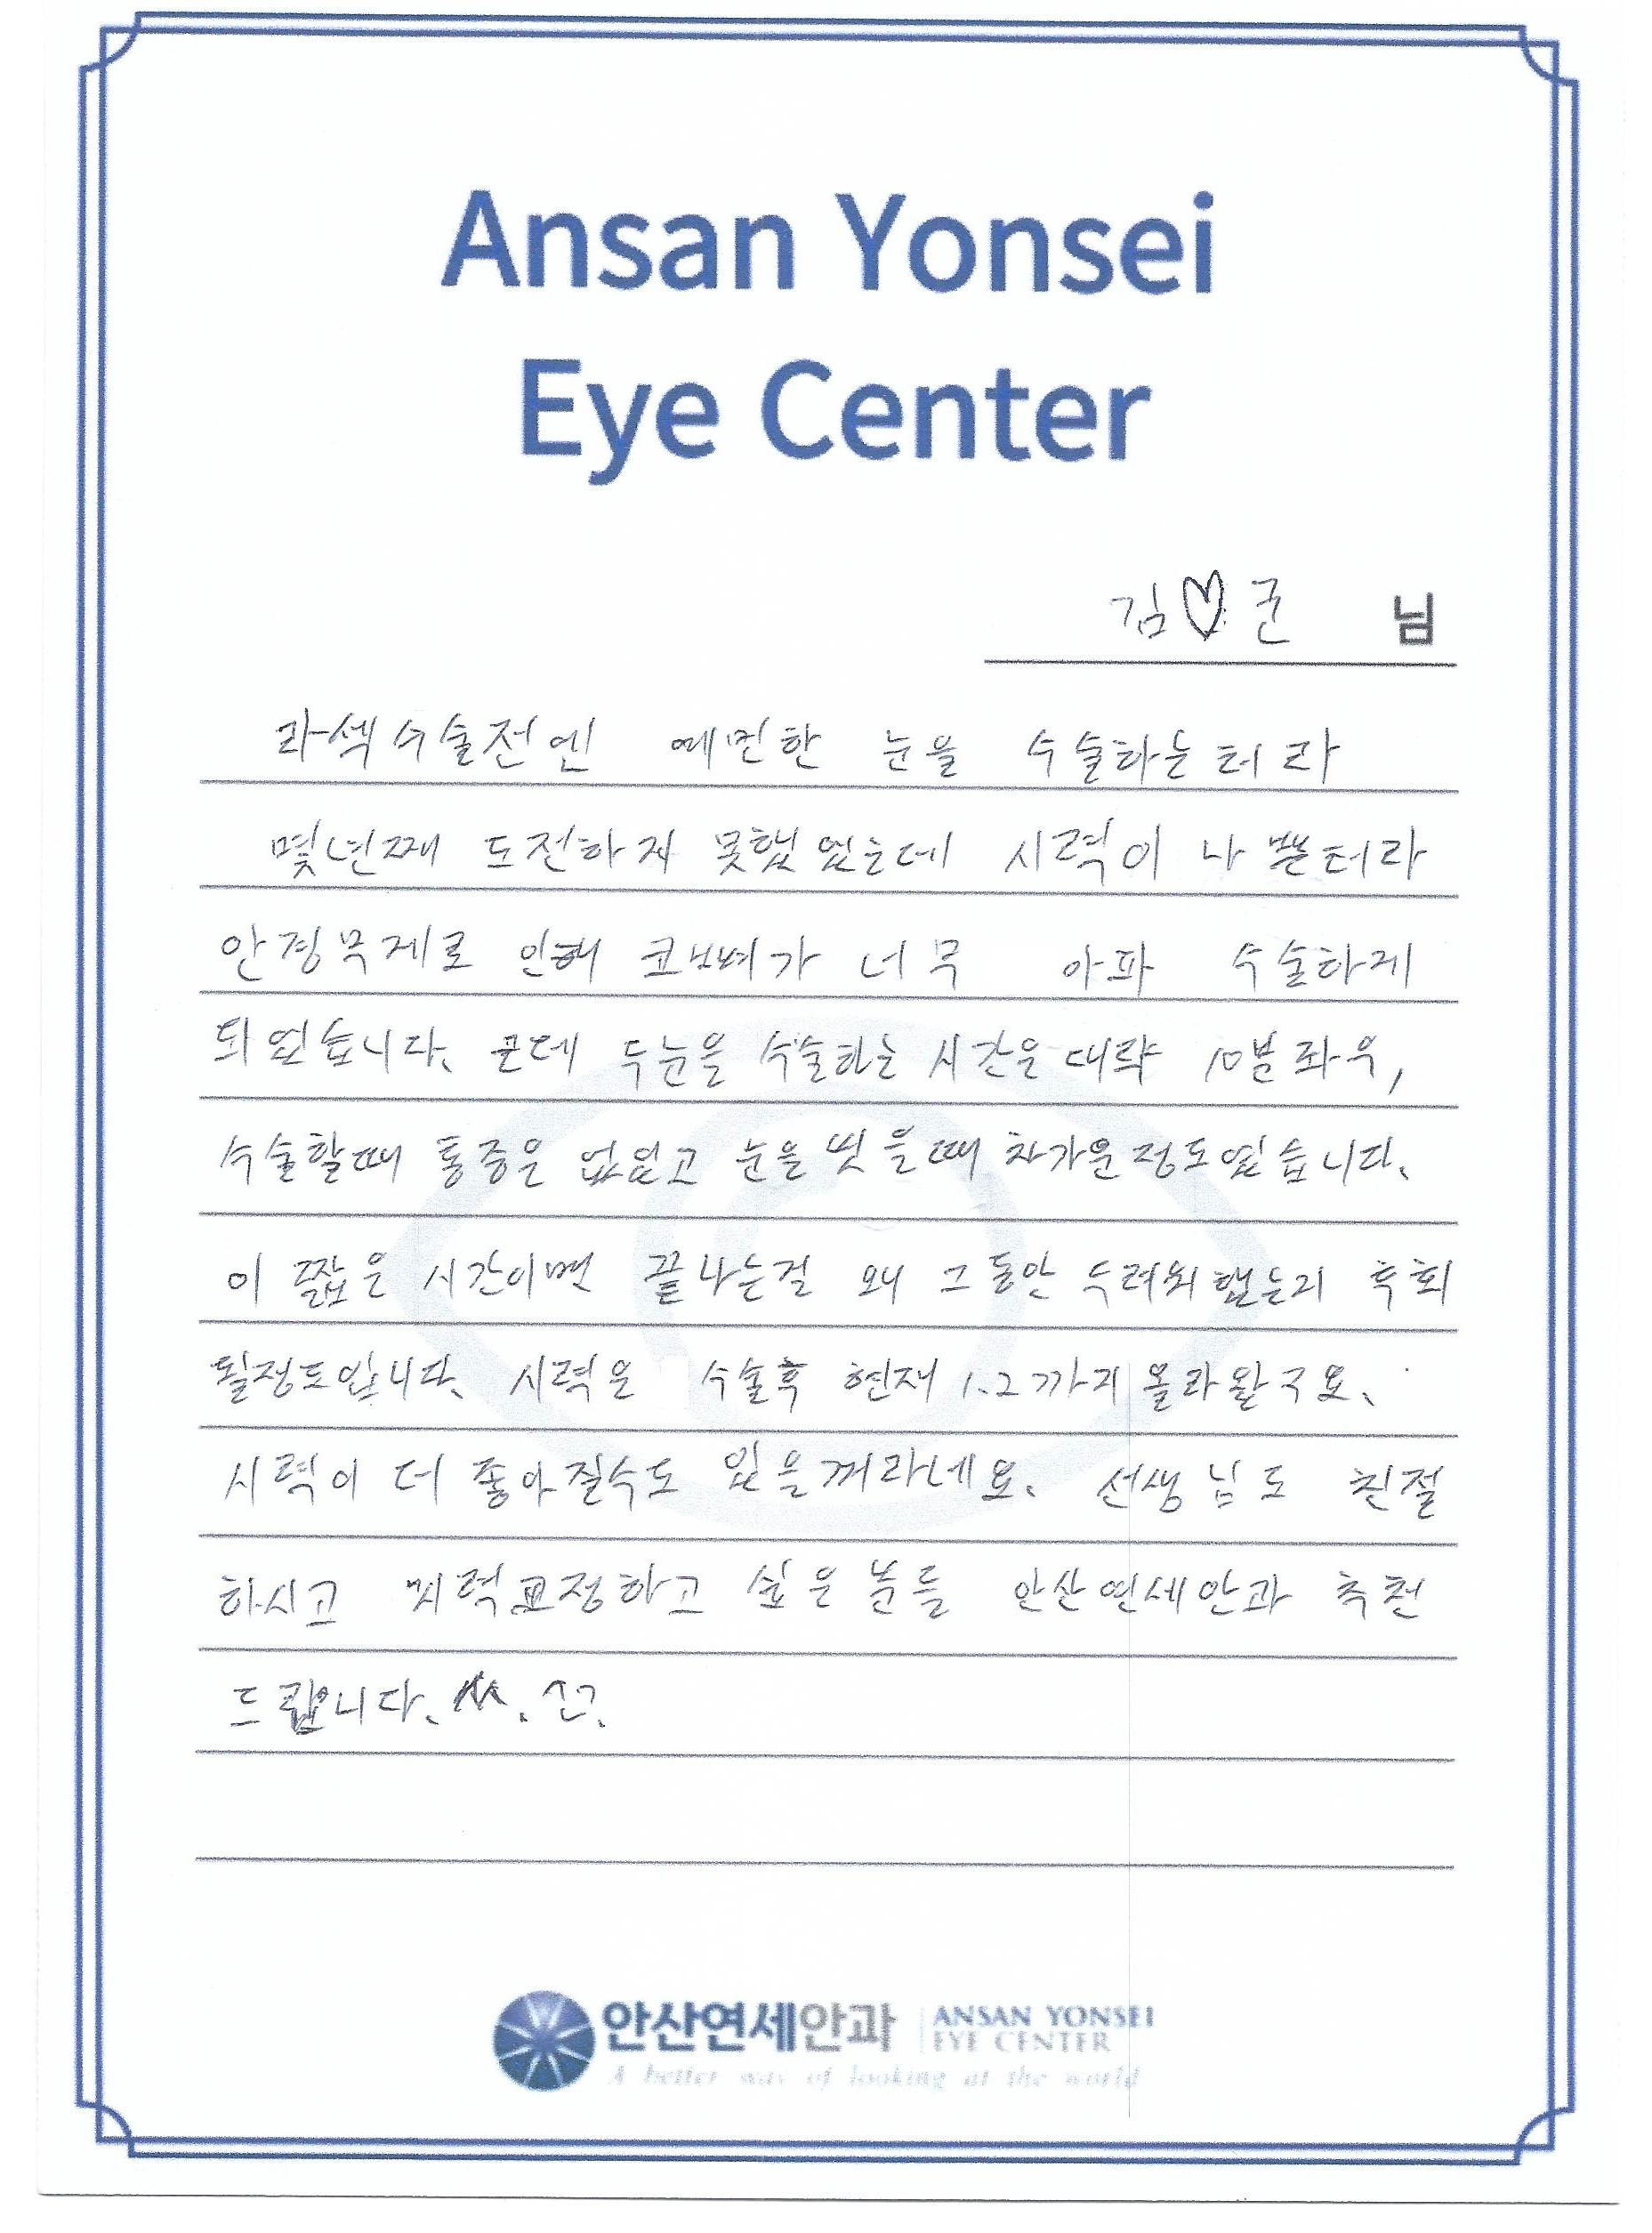 Ansan Yonsei
Eye Center
김♡군 님
라섹수술전엔 예민한 눈을 수술하는터라
몇년째 도전하지 못했었는데 시력이 나쁜터라
안경무게로 인해 코뼈가 너무 아파 수술하게
되었습니다. 근데 두눈을 수술하는 시간은 대략 10분 좌우,
수술할때 통증은 없었고 눈을 씻을때 차가운정도였습니다.
이 짧은 시간이면 끝나는걸 왜 그동안 두려워했는지 후회
될정도입니다. 시력은 수술후 현재 1.2까지 올라왔구요.
시력이 더 좋아질수도 있을꺼라네요. 선생님도 친절
하시고 시력교정하고 싶은분들 안산연세안과 추천
드립니다.
안산연세안과 ANSAN YONSEI
EYE CENTER
A better way of looking at the world